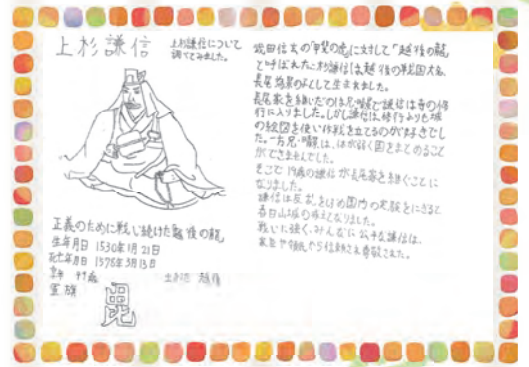 上杉謙信
上杉謙信について
調べてみました。
正義のために戦い続けた越後の龍
生年月日 1530年1月21日
死亡年月日 1578年3月13日
享年 49歳
出身地 越後
軍旗
毘
武田信玄の「甲斐の虎」に対して「越後の龍」
と呼ばれた上杉謙信は越後の戦国大名、
長尾為景の子として生まれました。
長尾家を継いだのは兄・晴景で謙信は寺の修
行に入りました。しかし謙信は修行よりも城
の絵図を使い作戦を立てるのが好きでし
た。一方兄・晴景は、体が弱く国をまとめること
ができませんでした。
そこで19歳の謙信が長尾家を継ぐことに
なりました。
謙信は反乱をしずめ国内の実権をにぎると
春日山城の城主になりました。
戦いに強く、みんなに公平な謙信は、
家臣や領民から信頼され尊敬された。